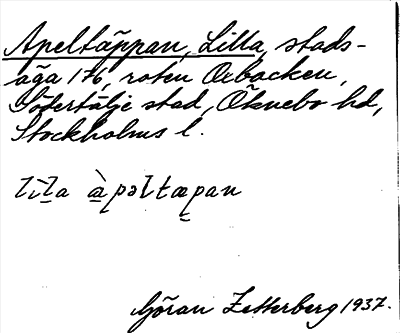 Apeltäppan, Lilla, stads-
äga 176, roten Orbacken,
Södertälje stad, Öknebo hd,
Stockholms l.
lìl̠a à̠pəltæpan
Göran Zetterberg 1937.